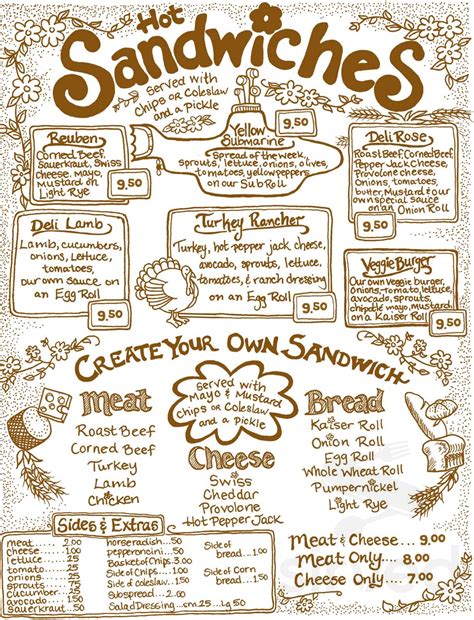 Hot
Sandwiches
Served with
Chips or Coleslaw
and a Pickle
Reuben
Corned Beef,
Sauerkraut, Swiss
Cheese, Mayo,
Mustard on
Light Rye
9.50
Yellow
Submarine
Spread of the week,
sprouts, lettuce, onions, olives,
tomatoes, yellow peppers
on our Sub Roll
9.50
Deli Rose
Roast Beef, Corned Beef,
Pepper Jack Cheese,
Provolone cheese,
Onions, tomatoes,
butter, Mustard & our
own special sauce
on an Onion Roll
9.50
Deli Lamb
Lamb, cucumbers,
onions, lettuce,
tomatoes,
our own sauce on
an Egg Roll
9.50
Turkey Rancher
Turkey, hot pepper jack cheese,
avocado, sprouts, lettuce,
tomatoes, & ranch dressing
on an Egg Roll
9.50
Veggie Burger
Our own Veggie burger,
onions, Tomato, lettuce,
avocado, sprouts,
chipotle mayo, mustard
on a Kaiser Roll
9.50
Create Your Own Sandwich
Served with
Mayo & Mustard
Chips or Coleslaw
and a Pickle
Meat
Roast Beef
Corned Beef
Turkey
Lamb
Chicken
Cheese
Swiss
Cheddar
Provolone
Hot Pepper Jack
Bread
Kaiser Roll
Onion Roll
Egg Roll
Whole Wheat Roll
Pumpernickel
Light Rye
Sides & Extras
meat ..... 2.00
cheese .... 1.00
lettuce .... .25
tomato .... .25
onions .... .25
sprouts .... .50
cucumber .50
avocado .. .50
sauerkraut .50
horseradish .. .50
pepperoncini .. .50
Basket of Chips 3.00
Side of Chips .. 1.50
Side of coleslaw .. 1.50
Side of pickles ... .50
Salad Dressing ... sm .25 ... lg .50
Side of
bread ..... 1.00
Side of Corn
bread .... 1.50
Meat & Cheese ... 9.00
Meat Only ... 8.00
Cheese Only ... 7.00